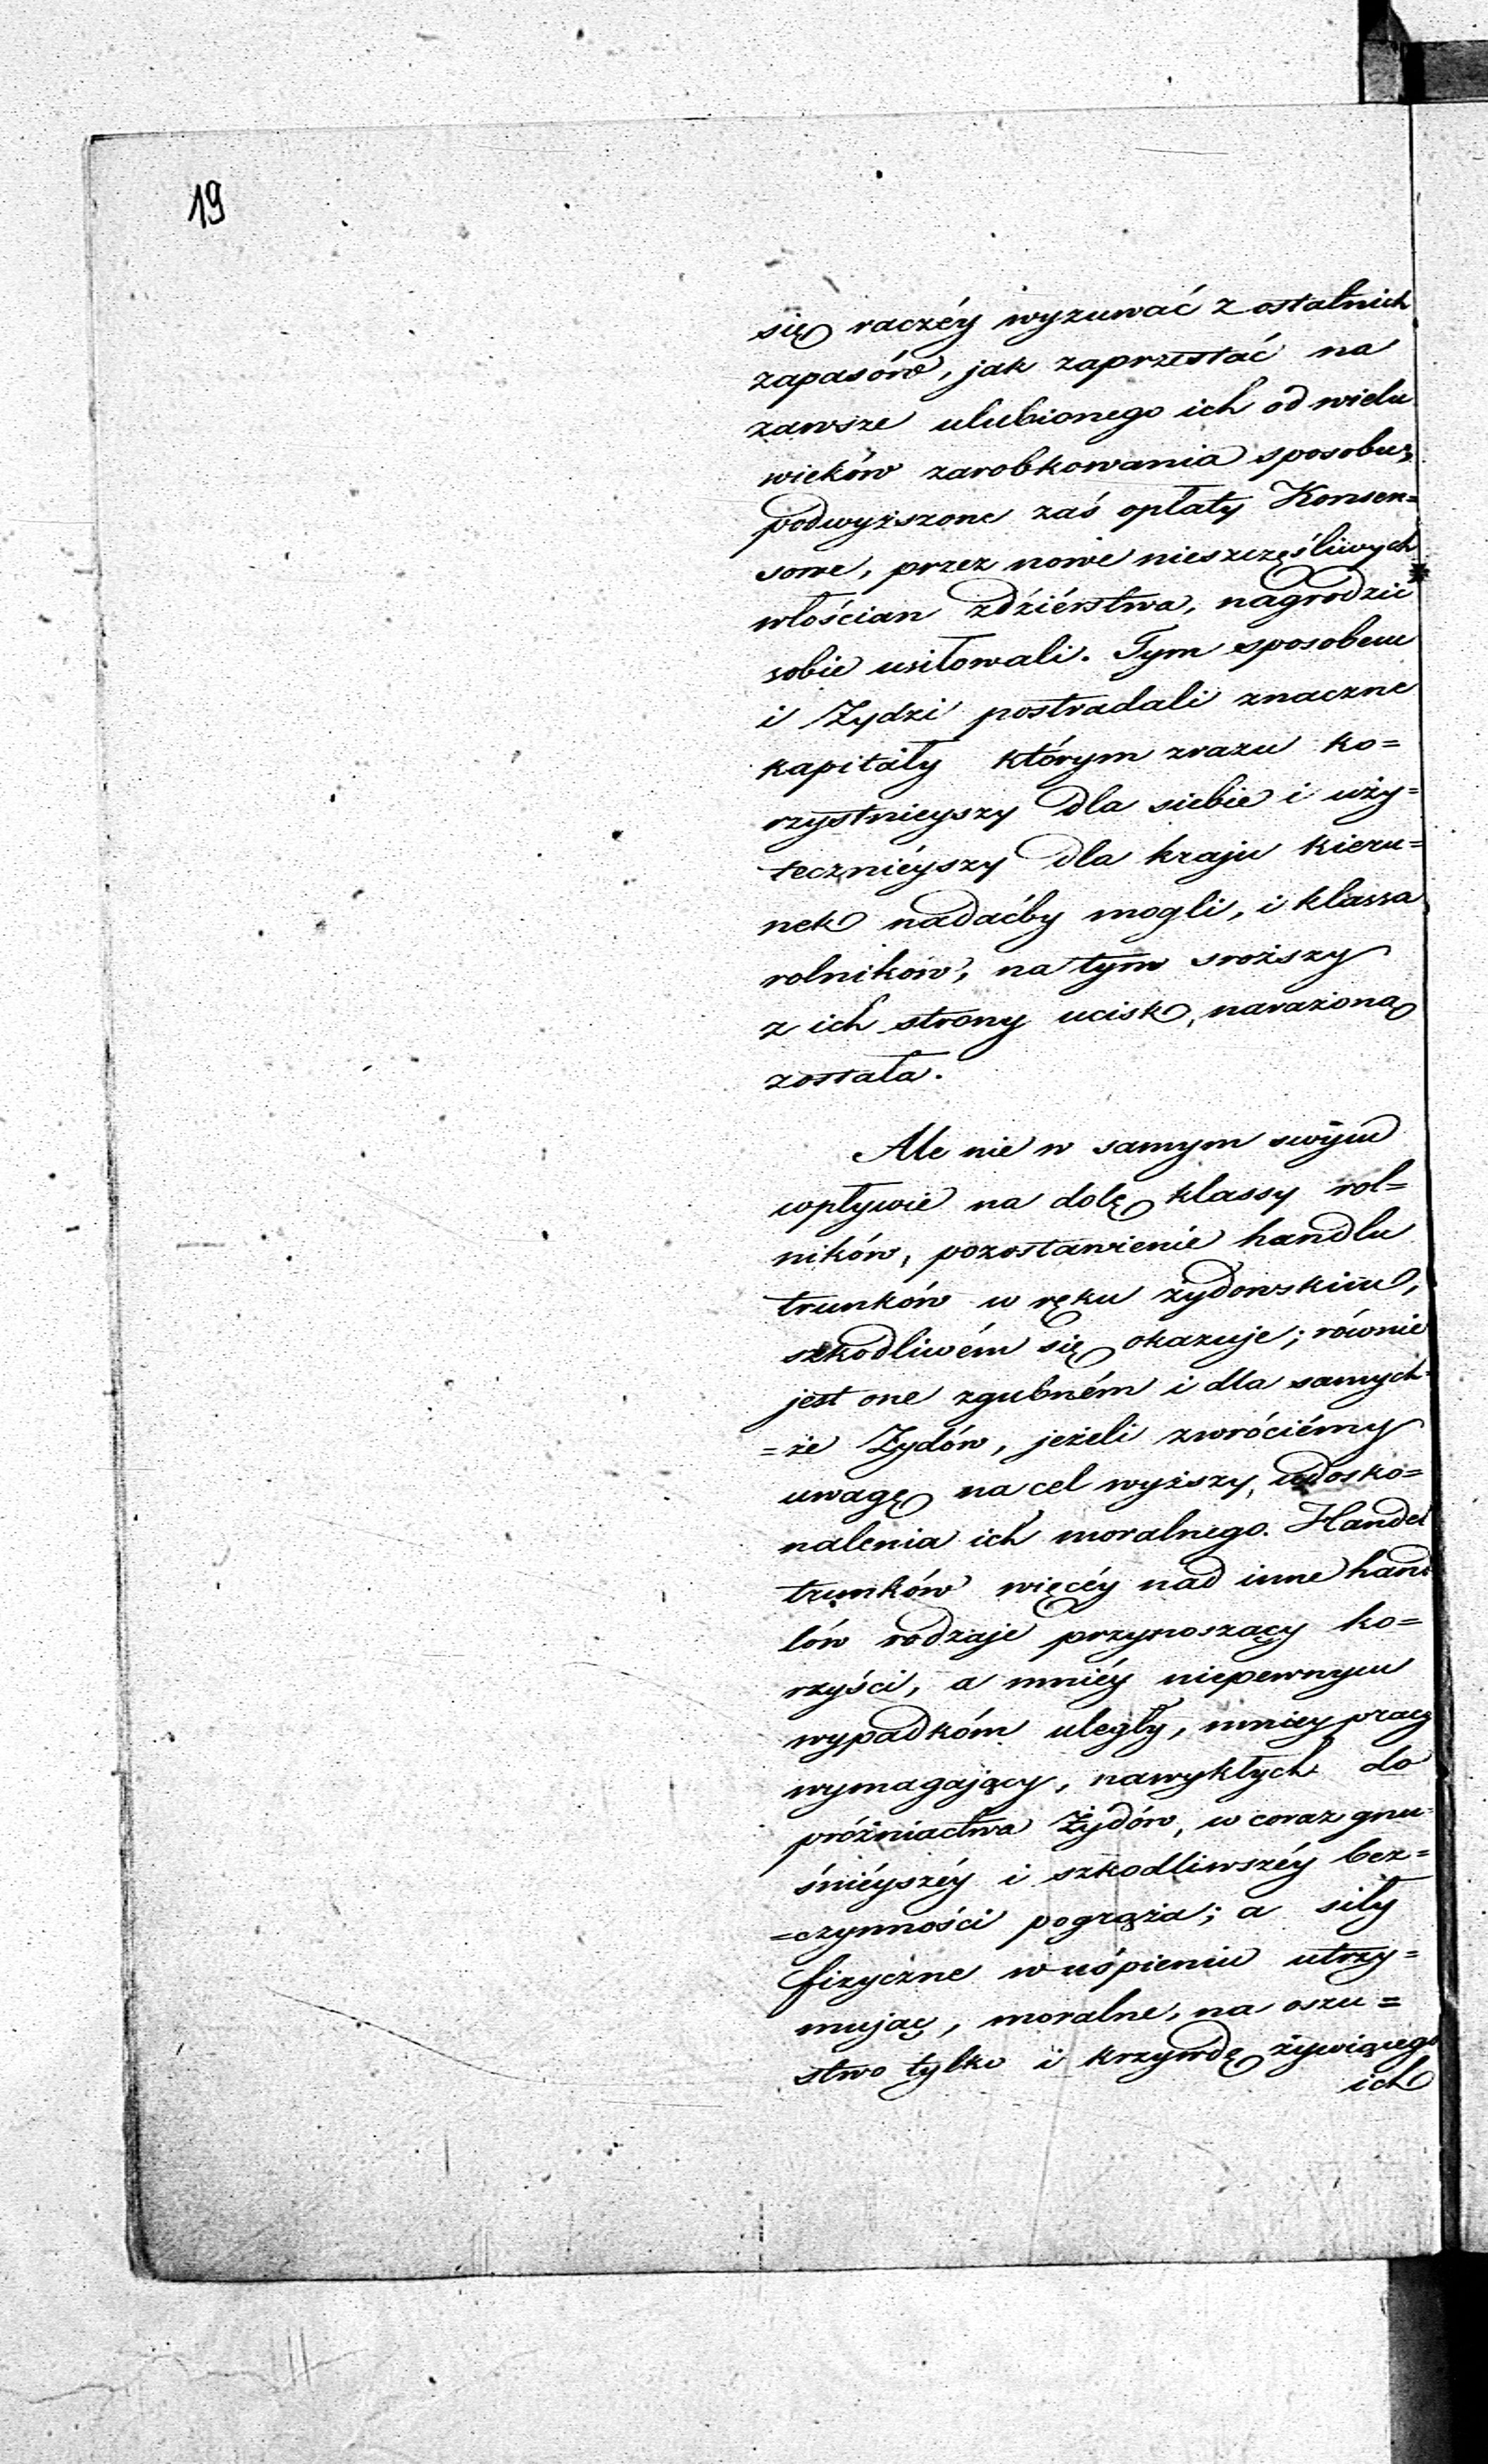 19
się raczéy wyzuwać z ostatnich
zapasów, jak zaprzestać na
zawsze ulubionego ich od wielu
wieków zarobkowania sposobu;
podwyższone zaś opłaty Konsen=
sowe, przez nowe nieszczęśliwych
włościan zdziérstwa, nagrodzić
sobie usiłowali. Tym sposobem
i Żydzi postradali znaczne
kapitały którym zrazu ko=
rzystnieyszy dla siebie i uży=
tecznieyszy dla kraju kieru=
nek nadaćby mogli, i klassa
rolników, na tym sroższy
z ich strony ucisk, narażoną
została.
Ale nie w samym swym
wpływie na dolę klassy rol=
ników, pozostawienie handlu
trunków w ręku żydowskim,
szkodliwém się okazuje; równie
jest one zgubném i dla samych=
=że Żydów, jeżeli zwróciémy
uwagę na cel wyższy, udosko=
nalenia ich moralnego. Handel
trunków więcéy nad inne hand=
lów rodzaje przynoszący ko=
rzyści, a mniéy niepewnym
wypadkóm uległy, mniey pracy
wymagający, nawykłych do
próżniactwa Żydów, w coraz gnu=
śniéyszéy i szkodliwszéy bez=
=czynności pogrąża; a siły
fizyczne w uśpieniu utrzy=
mując, moralne, na oszu=
stwo tylko i krzywdę żywiącego
ich